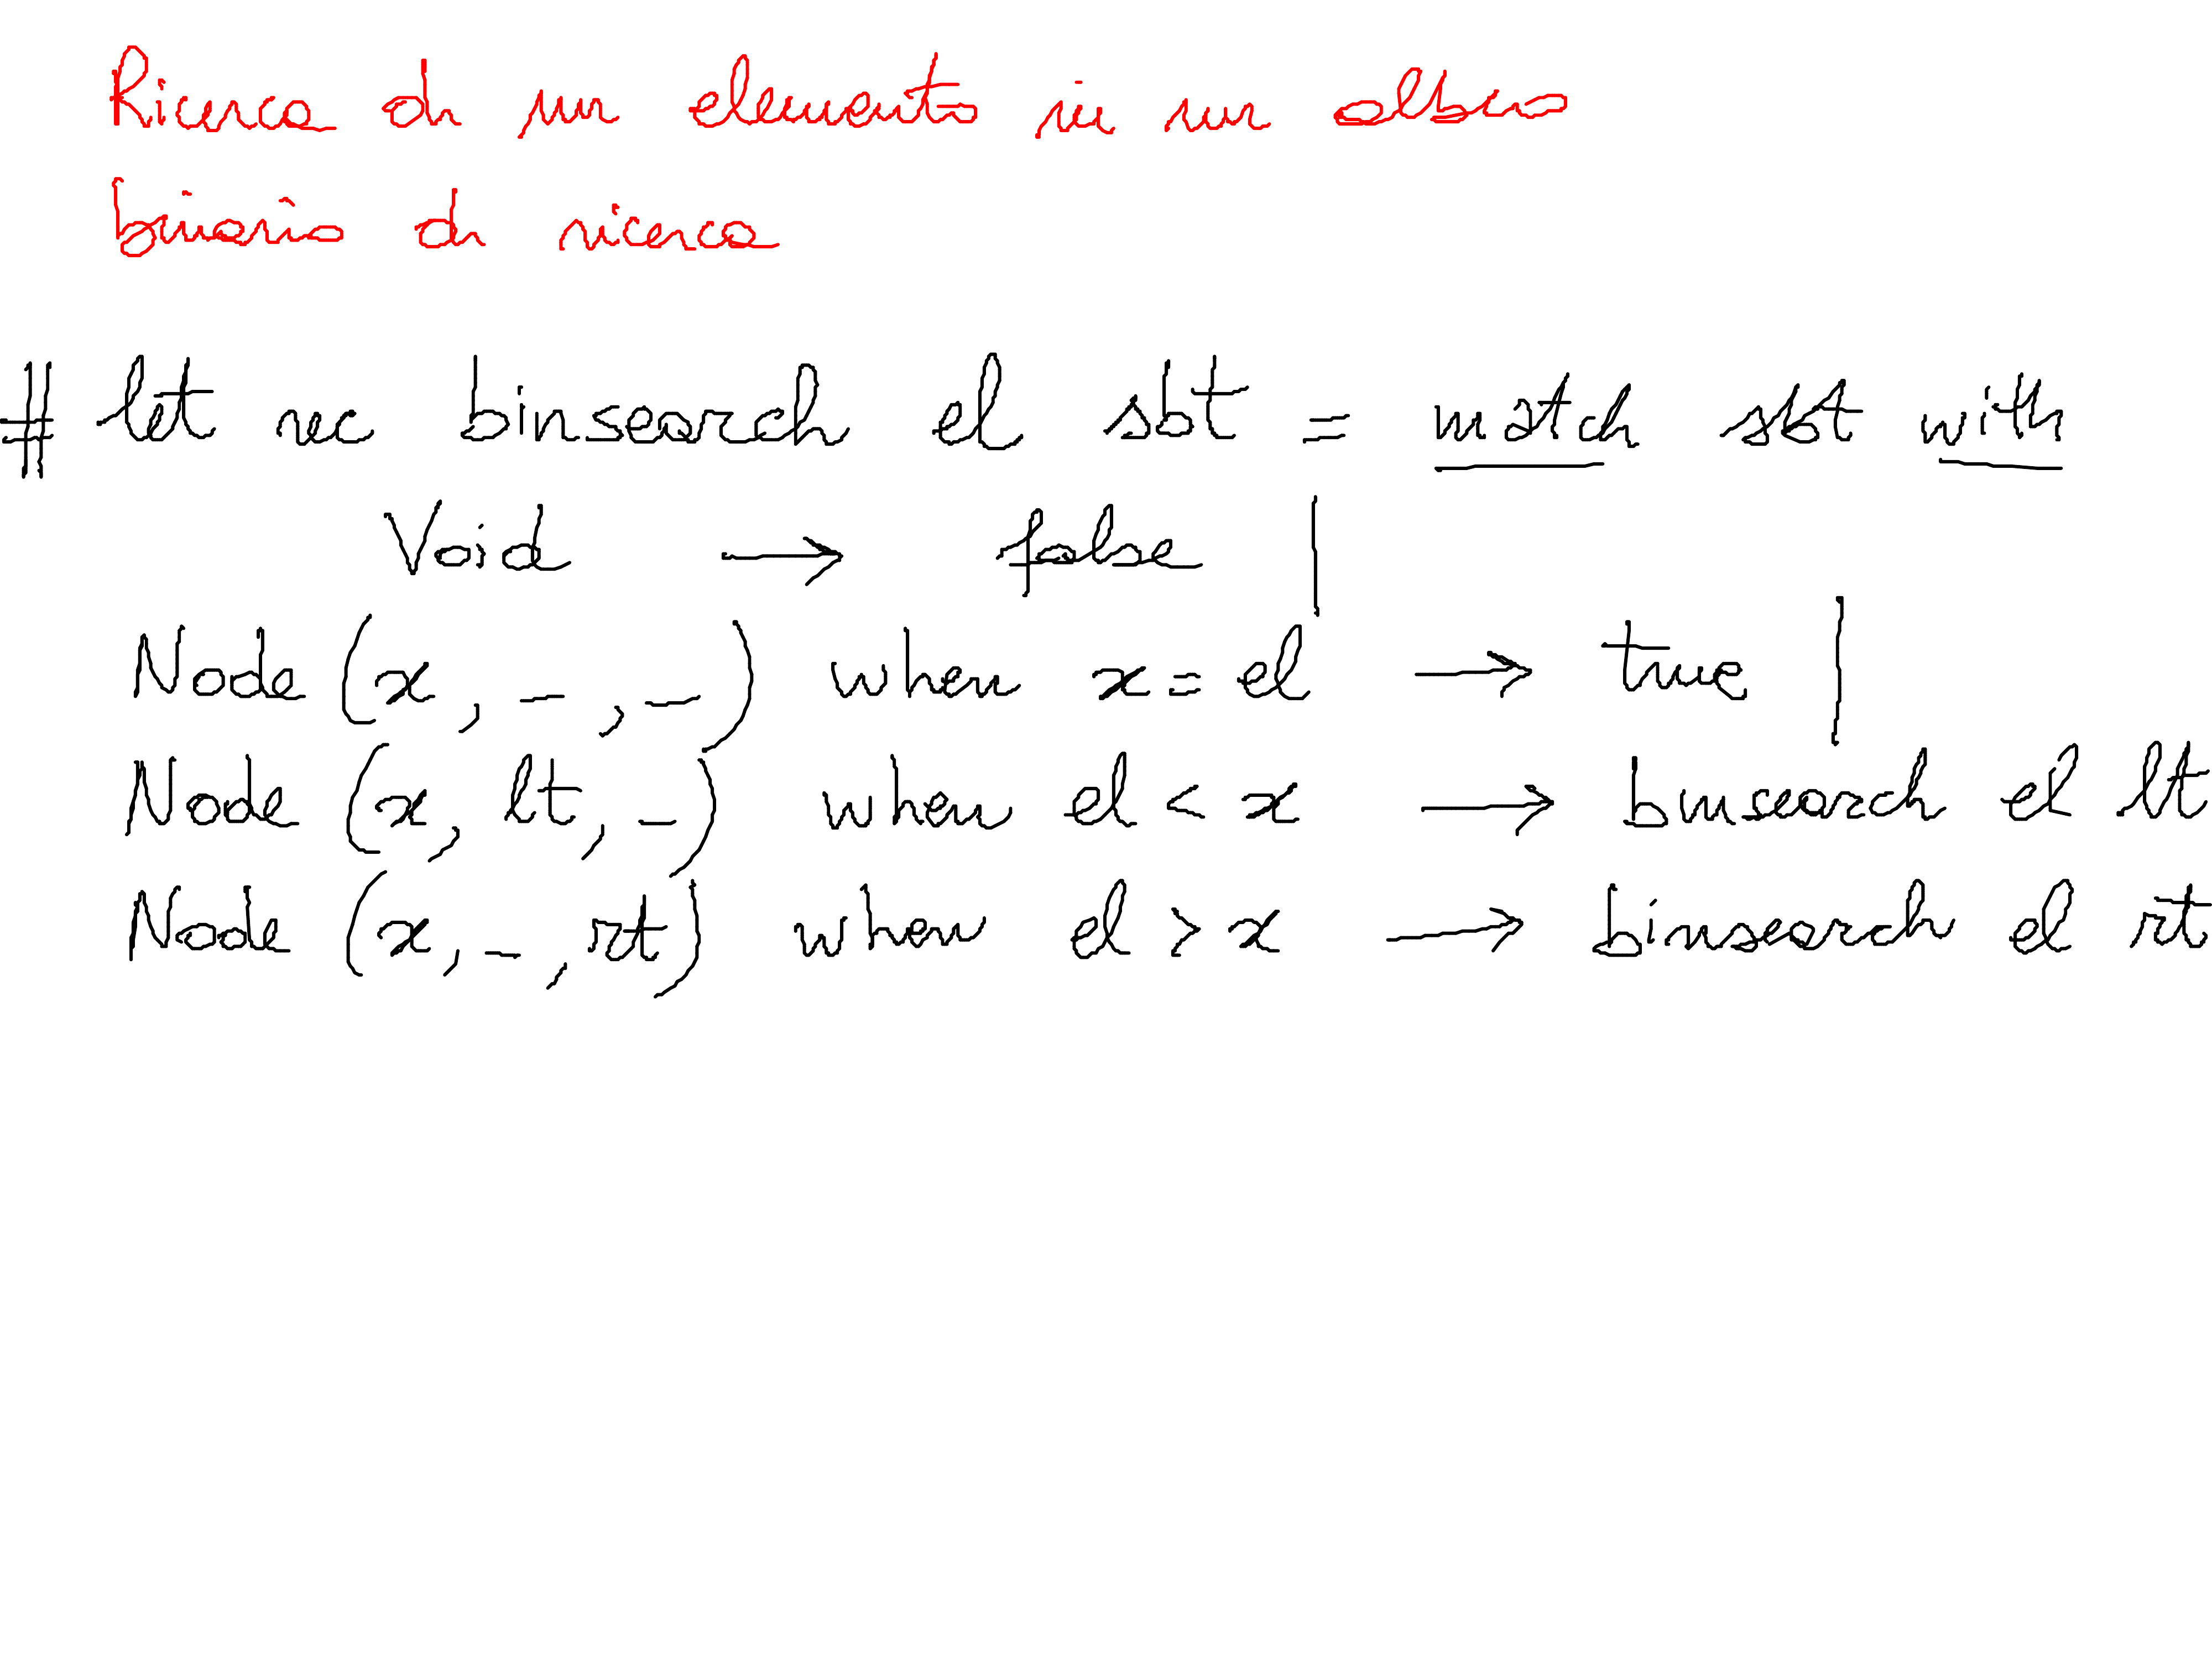 Ricerca di un elemento in un albero
binario di ricerca
# let rec binsearch el sbt = match sbt with
Void → false |
Node (x, _, _) when x = el → true |
Node (x, lt, _) when el < x → binsearch el lt
Node (x, _, rt) when el > x → binsearch el rt